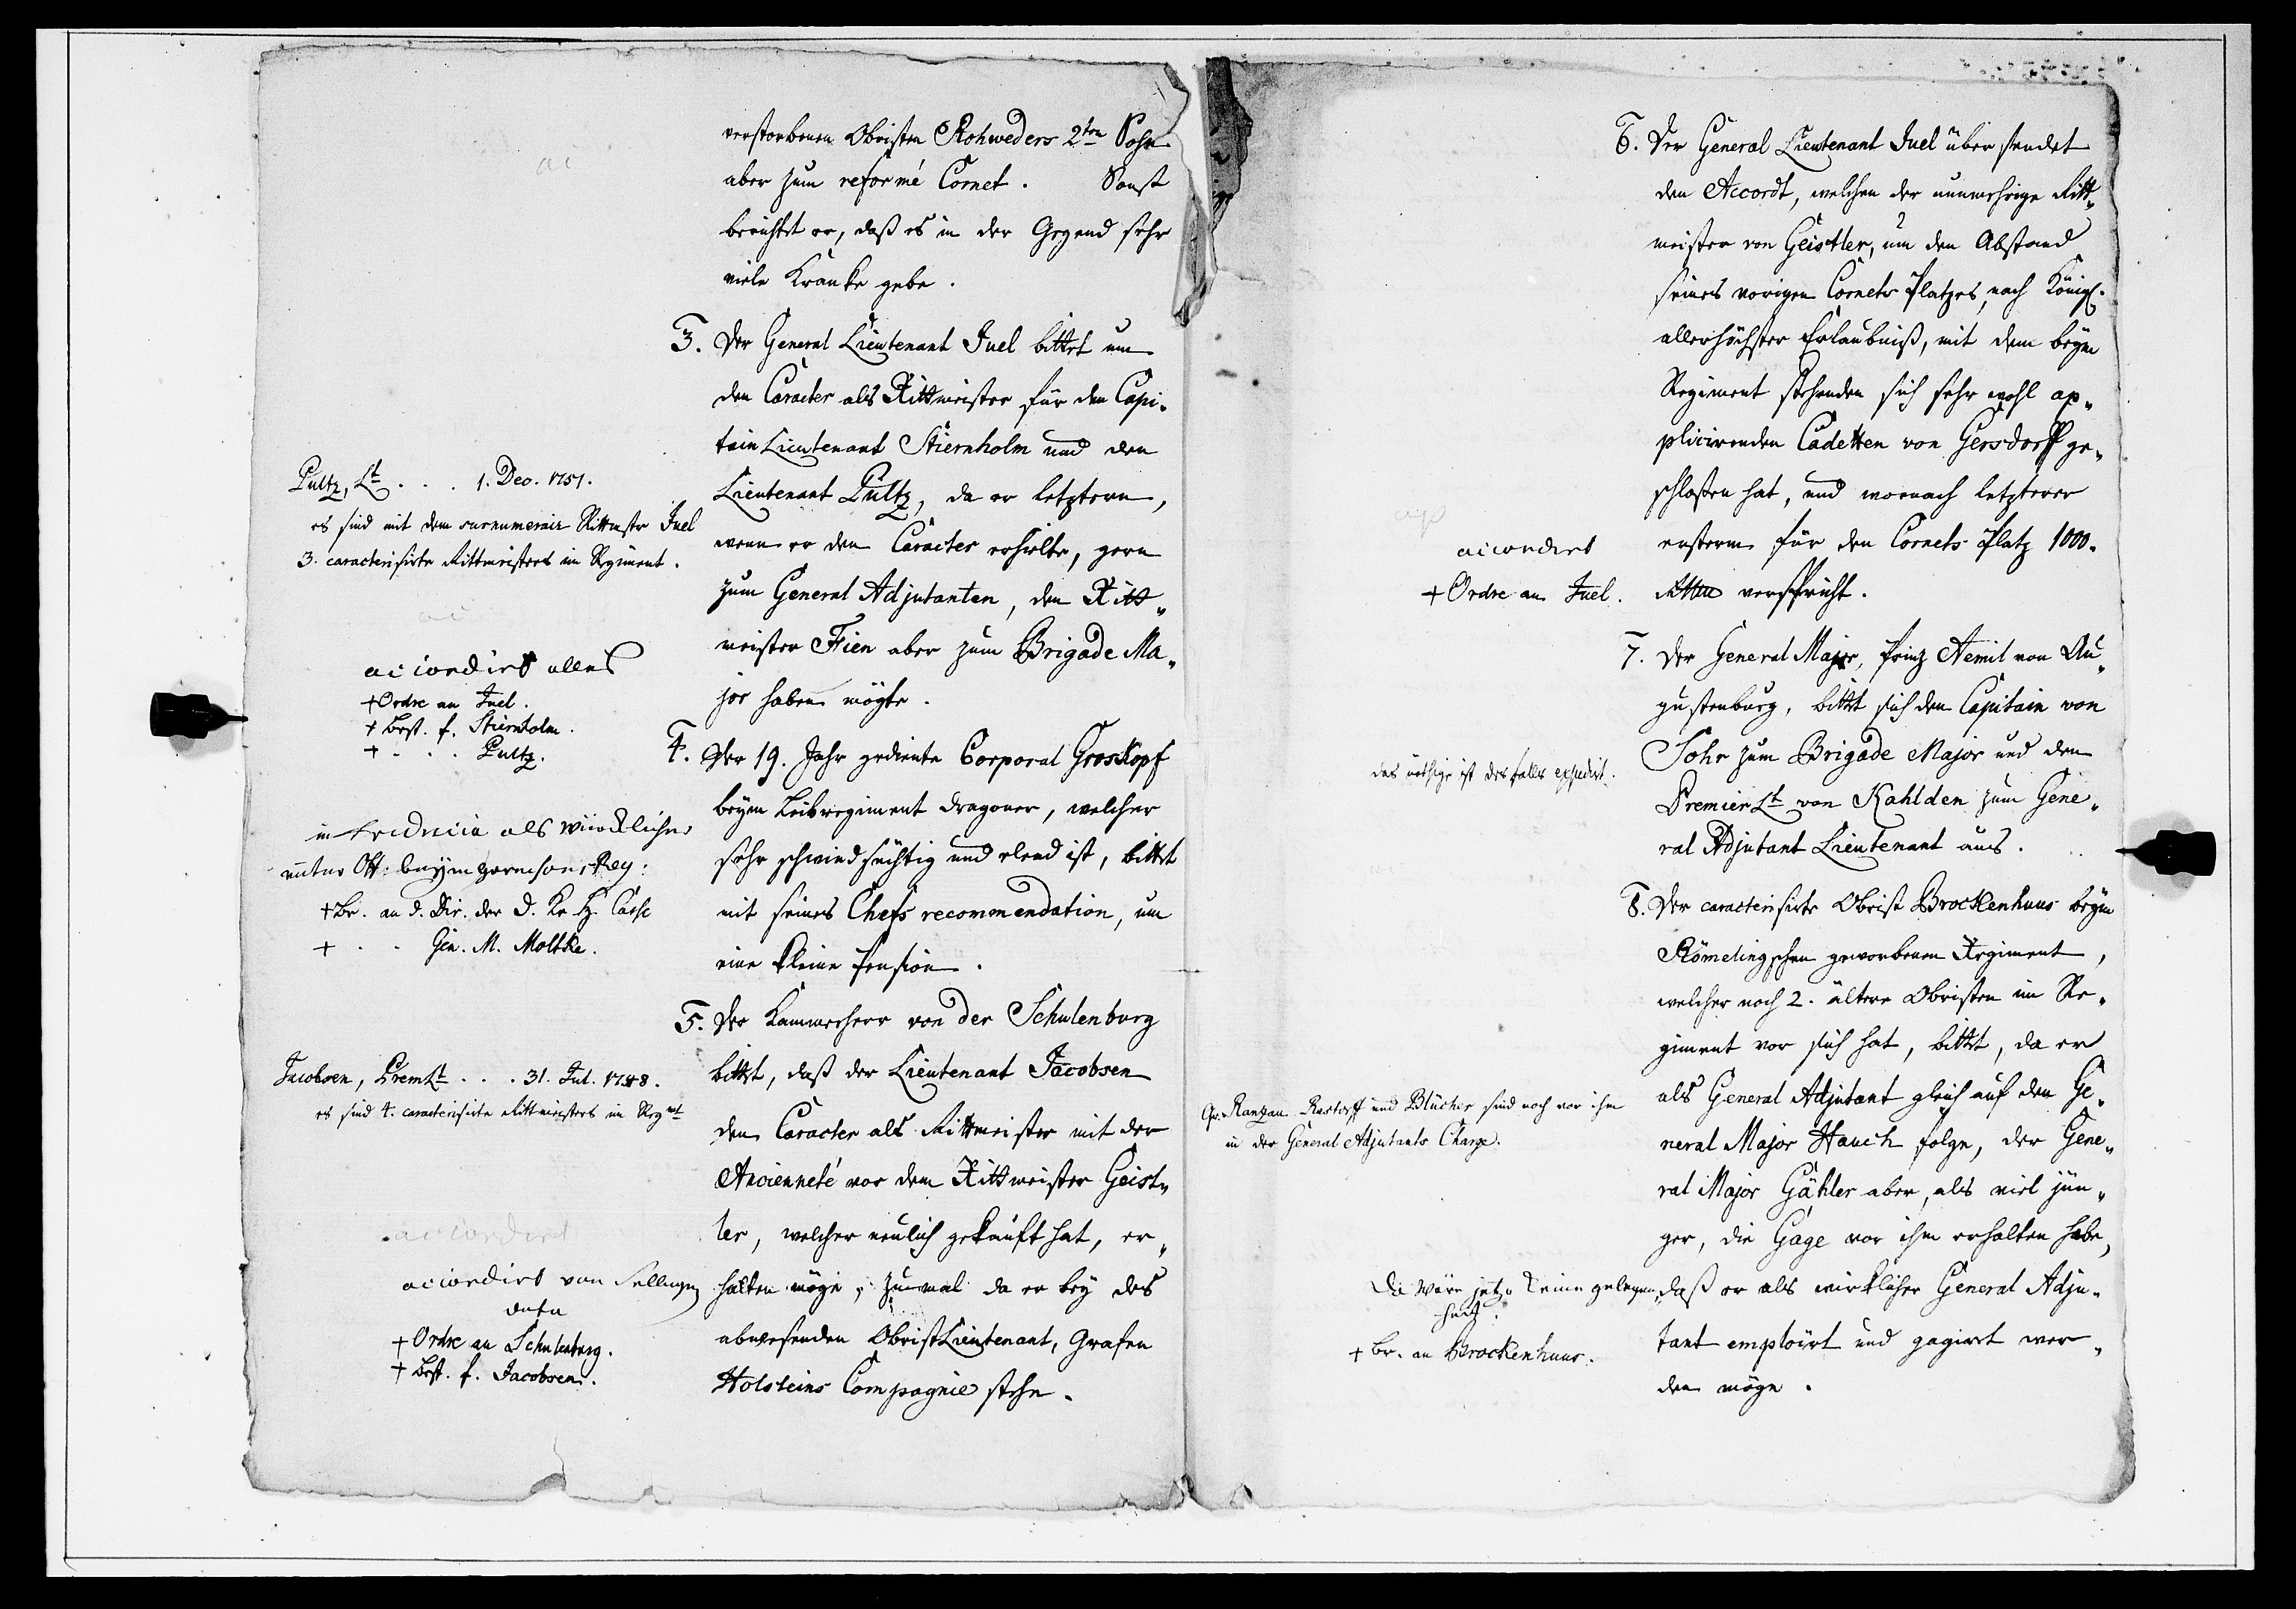 verstorbenen Obristen Rohweders 2ten Sohn
aber zum reformé Cornet. Sonst
berichtet er, daß es in der Gegend sehr
viele Kranke gebe.
3. Der General Lieutenant Juel bittet um
den Caracter als Rittmeister für den Capi-
tain Lieutenant Stiernholm und den
Lieutenant Pultz, da er letztern,
wenn er den Caracter erhielte, gern
zum General Adjutanten, den Ritt-
meister Fien aber zum Brigade Ma-
jor haben mögte.
Pultz, Lt . . . 1. Dec. 1751.
es sind mit dem surnumerair Rittmstr Juel
3. caracterisirte Rittmeisters im Regiment.
accordirt alles
+ Ordre an Juel.
+ Best. f. Stiernholm.
+ - - - Pultz.
4. Der 19. Jahr gediente Corporal Groskopf
beym Leibregiment Dragoner, welcher
sehr schwindsüchtig und elend ist, bittet
mit seines Chefs recommendation, um
eine kleine Pension.
in Fridricia als würcklicher
unter Off: beym garnisons Reg:
+ Br. an d. Dir. der D. Kr. H. Casse
+ - - Gen. M. Moltke.
5. Der Kammerherr von der Schulenburg
bittet, daß der Lieutenant Jacobsen
den Caracter als Rittmeister mit der
Ancienneté vor dem Rittmeister Geist-
ler, welcher neulich gekauft hat, er-
halten möge, zumal da er bey des
abwesenden Obristlieutenant, Grafen
Holsteins Compagnie stehe.
Jacobsen, Prem Lt . . . 31. Jul. 1748.
es sind 4. caracterisirte Rittmeisters im Regmt
accordirt
accordirt von selbigen
dato
+ Ordre an Schulenburg.
+ Best. f. Jacobsen.
6. Der General Lieutenant Juel übersendet
den Accordt, welchen der nunmehrige Ritt-
meister von Geistler, um den Abstand
seines vorigen Cornets Platzes, nach Königl.
allerhöchster Erlaubniß, mit dem beym
Regiment stehenden sich sehr wohl ap-
plicirenden Cadetten von Gersdorff ge-
schloßen hat, und wornach letzterer
ersterm für den Cornets Platz 1000.
verspricht.
accordirt
+ Ordre an Juel.
7. Der General Major, Prinz Aemil von Au-
gustenburg, bittet sich den Capitain von
Sohr zum Brigade Major und den
Premier Lt von Kahlden zum Gene-
ral Adjutant Lieutenant aus.
das nöthige ist desfalls expedirt.
8. Der caracterisirte Obrist Brockenhuus beym
Römelingschen geworbenen Regiment,
welcher noch 2. ältere Obristen im Re-
giment vor sich hat, bittet, da er
als General Adjutant gleich auf den Ge-
neral Major Hauch folge, der Gene-
ral Major Gähler aber, als viel jün-
ger, die Gage vor ihm erhalten habe,
daß er als wirklicher General Adju-
tant emploirt und gagirt wer-
den möge.
Gr. Ranzau Rastorff und Blücher sind noch vor ihm
in der General Adjutants Charge.
Da wäre jetzo keine gelegen-
heit.
+ Br. an Brockenhuus.